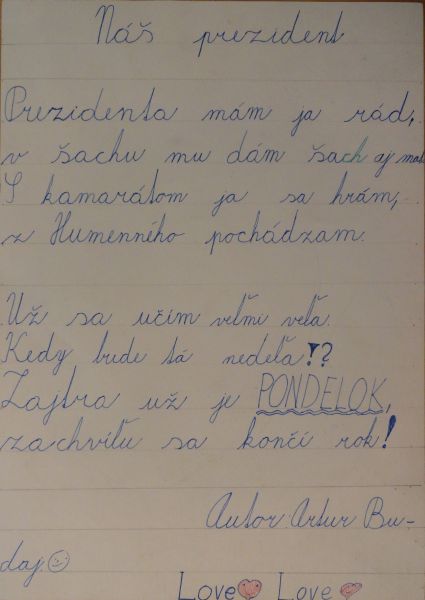 Náš prezident
Prezidenta mám ja rád,
v šachu mu dám šach aj mat.
S kamarátom ja sa hrám,
z Humenného pochádzam.
Už sa učím veľmi veľa.
Kedy bude tá nedeľa!?
Zajtra už je PONDELOK,
zachvíľu sa končí rok!
Autor: Artur Bu-
daj.
Love Love